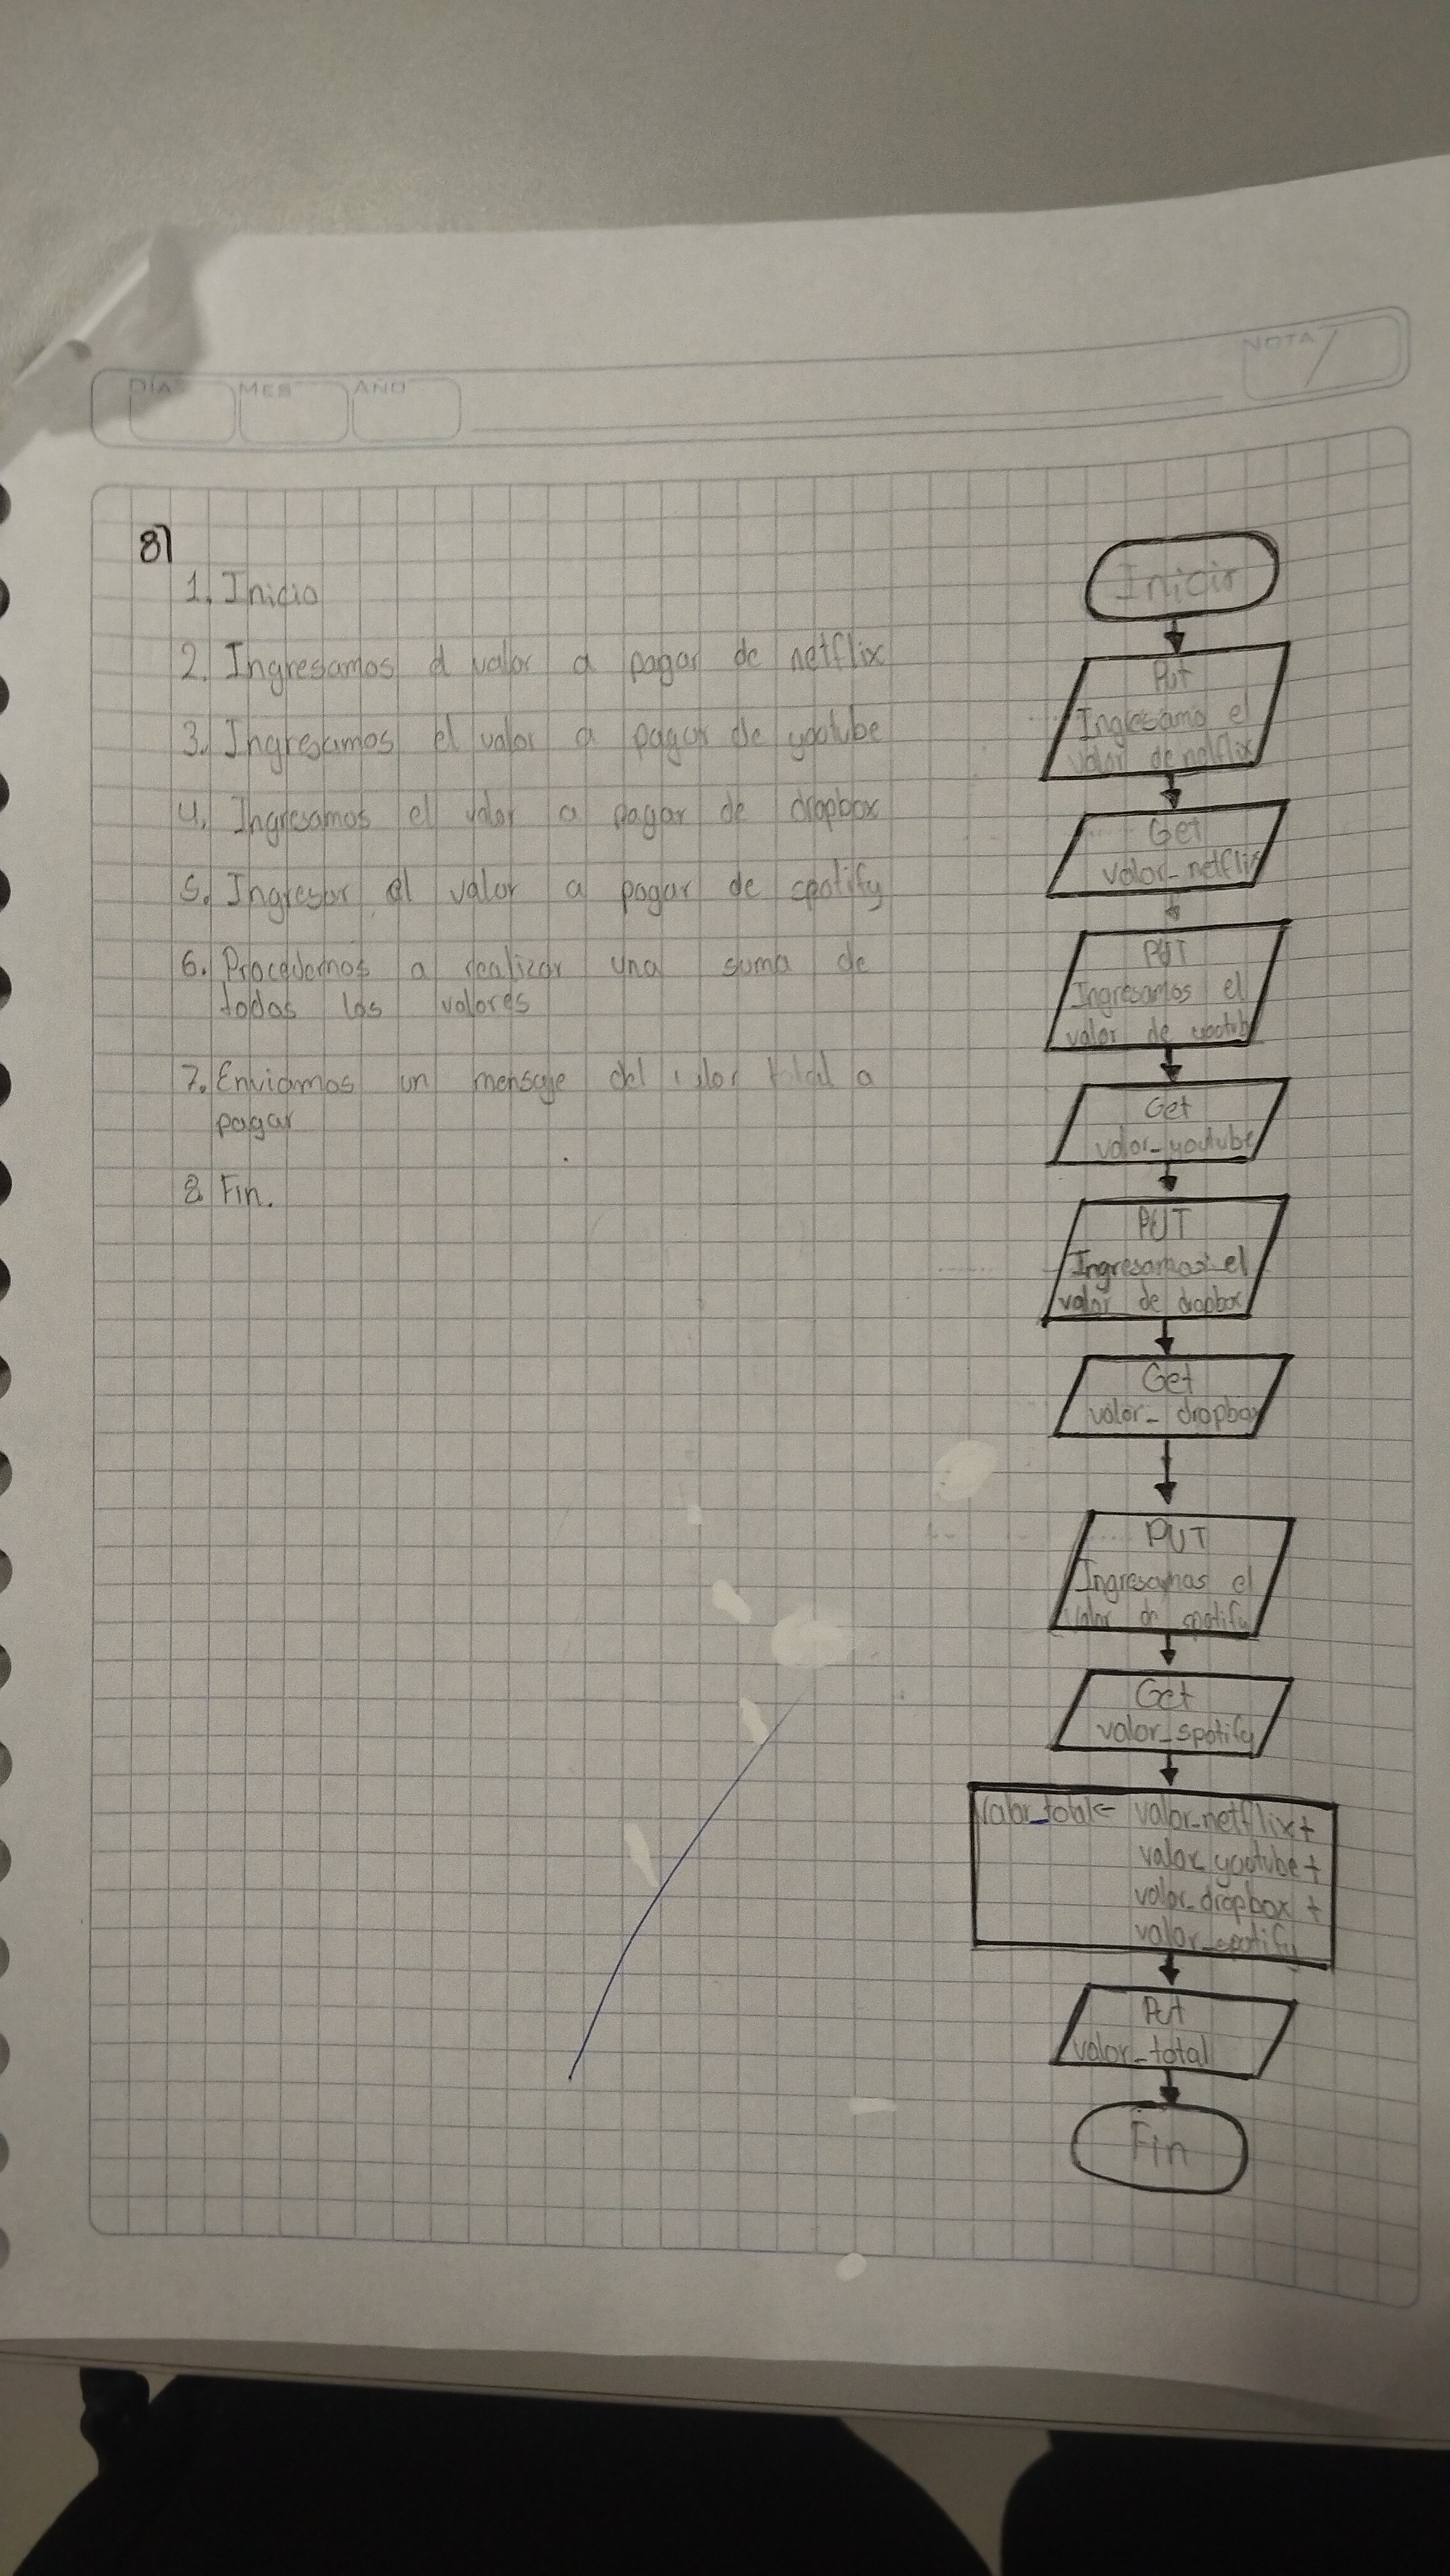 DÍA MES AÑO NOTA
8)
1. Inicio
2. Ingresamos el valor a pagar de netflix
3. Ingresamos el valor a pagar de yootube
4. Ingresamos el valor a pagar de dropbox
5. Ingresar el valor a pagar de spotify
6. Procedemos a realizar una suma de
todos los valores
7. Enviamos un mensaje del valor total a
pagar
8 Fin.
Inicio
Put
Ingresamo el
valor de netflix
Get
valor_netflix
PUT
Ingresamos el
valor de yootube
Get
valor_youtube
PUT
Ingresamos el
valor de dropbox
Get
valor_dropbox
PUT
Ingresamos el
valor de spotify
Get
valor_spotify
Valor_total← valor_netflix+
valor_yootube+
valor_dropbox +
valor_spotify
Put
valor_total
Fin